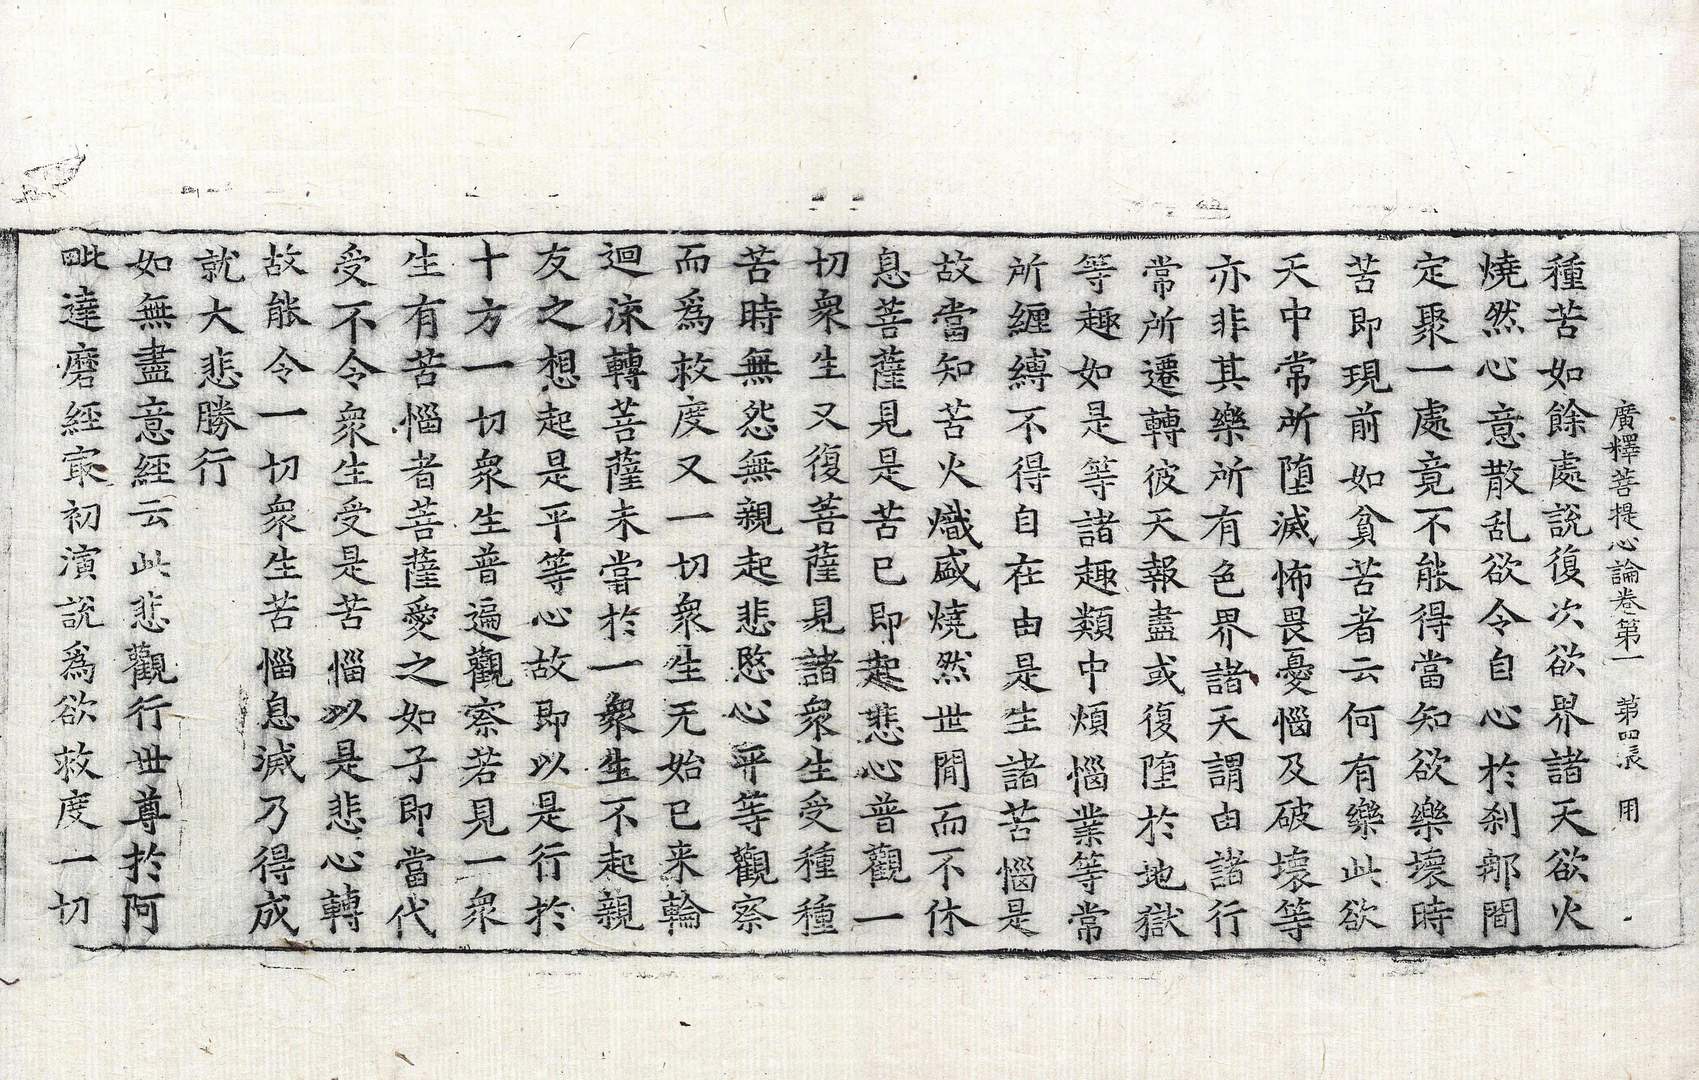 廣釋菩提心論卷第一 第四張 用
種苦如餘處說復次欲界諸天欲火
燒然心意散乱欲令自心於刹那間
定聚一處竟不能得當知欲樂壞時
苦即現前如貧苦者云何有樂此欲
天中常所墮滅怖畏憂惱及破壞等
亦非其樂所有色界諸天謂由諸行
常所遷轉彼天報盡或復墮於地獄
等趣如是等諸趣類中煩惱業等常
所纏縛不得自在由是生諸苦惱是
故當知苦火熾盛燒然世間而不休
息菩薩見是苦已即起悲心普觀一
切衆生又復菩薩見諸衆生受種種
苦時無怨無親起悲愍心平等觀察
而爲救度又一切衆生无始已来輪
迴流轉菩薩未甞於一衆生不起親
友之想起是平等心故即以是行於
十方一切衆生普遍觀察若見一衆
生有苦惱者菩薩愛之如子即當代
受不令衆生受是苦惱以是悲心轉
故能令一切衆生苦惱息滅乃得成
就大悲勝行
如無盡意經云此悲觀行世尊於阿
毗達磨經㝡初演說爲欲救度一切